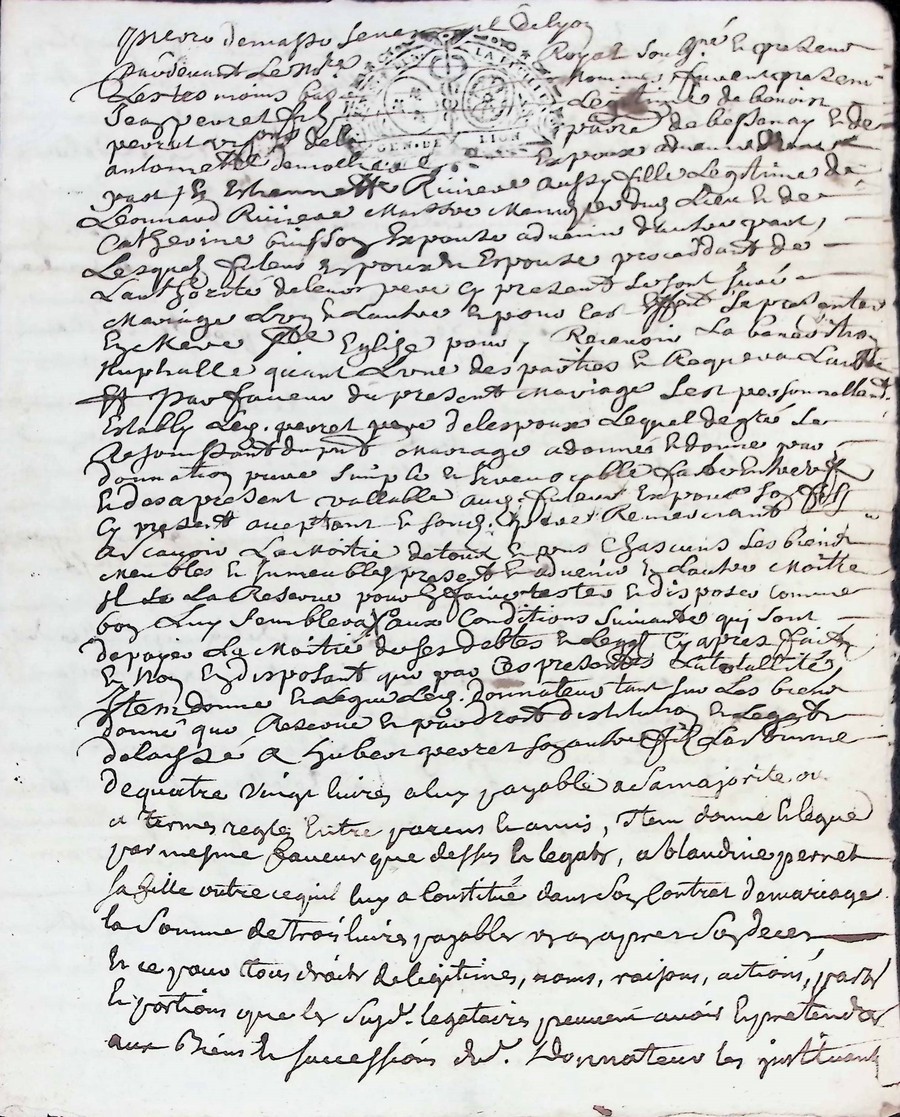 pardevant le No.re Royal soubgné et presents
Les tesmoins bas nommes furent presents
Jean peyret fils Legitime de benoist
peyret vigneron de la parroisse de bessenay et de
antoinette
GEN. DE LION
part, et Estiennette Riviere aussy fille Legitime de
Leonnard Riviere Maistre Mannier dud. Lieu et de
Catherine buisson Espouse advenir d'autre part,
Lesquels futurs Espoux et Espouse proceddant de
L'authorité de leurs pere cy present se sont juré
Mariage L'un et L'autre et pour cet effect se presenter
En N.re Mere S.te Eglise pour y Recevoir La benediction
Nuptialle quant L'une des parties En Requerra L'autre
Et par faveur du present Mariage s'est personnellement
Estably led. peyret pere de l'espoux Lequel de gré se
Rejouissant du pnt Mariage a donné et donne par
donnation pure simple et irrevocable faitte Entre vifs
Et des a present vallable aud. futeur Espoux son fils
Cy present acceptant et sond. pere Remerciant
ascavoir La Moitié de tous et uns Chascuns ses biens
Meubles et immeubles presents et advenir et L'autre Moitié
il se La Reserve pour En faire tester et disposer comme
bon Luy semblera, aux Conditions suivantes qui sont
de payer La Moitié de ses debtes et Legats Cy apres faits
et Non En disposant que par Ces presentes
Item donne et Legue Led. donnateur tant sur Les biens
donné que Reservé et par droit d'istitution et Legats
delaissé a hubert peyret son autre fils La somme
de quatre vingt livres a luy payable a sa majorite ou
a termes reglé Entre parens et amis, Item donne et legue
par mesme faveur que dessus et legats, a blandine peyret
sa fille outre ce quil luy a Constitué dans son Contrat de mariage
la Somme de trois livres payables un an apres son deces
Et ce pour tous droits de legitimes, noms, raisons, actions, parts
Et portions que les susd. legataires peuvent avoir et pretendre
aux Biens et successions dud. donnateur les instituant